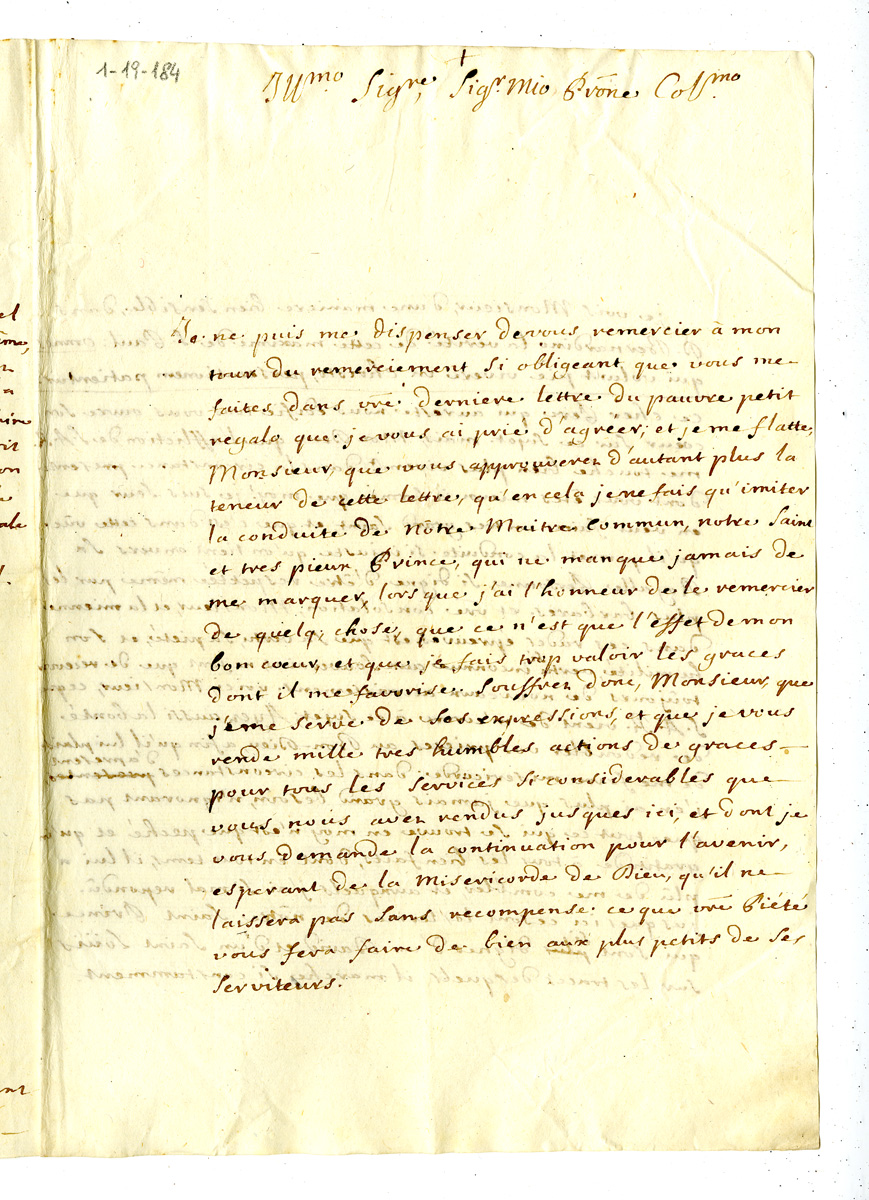 1-19-184
+
Illmo Sigre, Sigr Mio Prōne Colssmo
Je ne puis me dispenser de vous remercier à mon
tour du remerciement si obligeant que vous me
faites dans vrē derniere lettre du pauvre petit
regalo que je vous ai prié d'agréer; et je me flatte,
Monsieur, que vous approuverez d'autant plus la
teneur de cette lettre, qu'en cela je ne fais qu'imiter
la conduite de Nôtre Maitre commun, notre Saint
et tres pieux Prince, qui ne manque jamais de
me marquer, lors que j'ai l'honneur de le remercier
de quelq. chose, que ce n'est que l'effet de mon
bom coeur, et que je fais trop valoir les graces
dont il me favorise. Souffrez donc, Monsieur, que
je me serve de ses expressions, et que je vous
rende mille tres humbles actions de graces
pour tous les services si considerables que
vous nous avez rendus jusques ici, et dont je
vous demande la continuation pour l'avenir,
esperant de la Misericorde de Dieu, qu'il ne
laissera pas sans recompense ce que vrē Piété
vous fera faire de bien aux plus petits de ses
serviteurs.